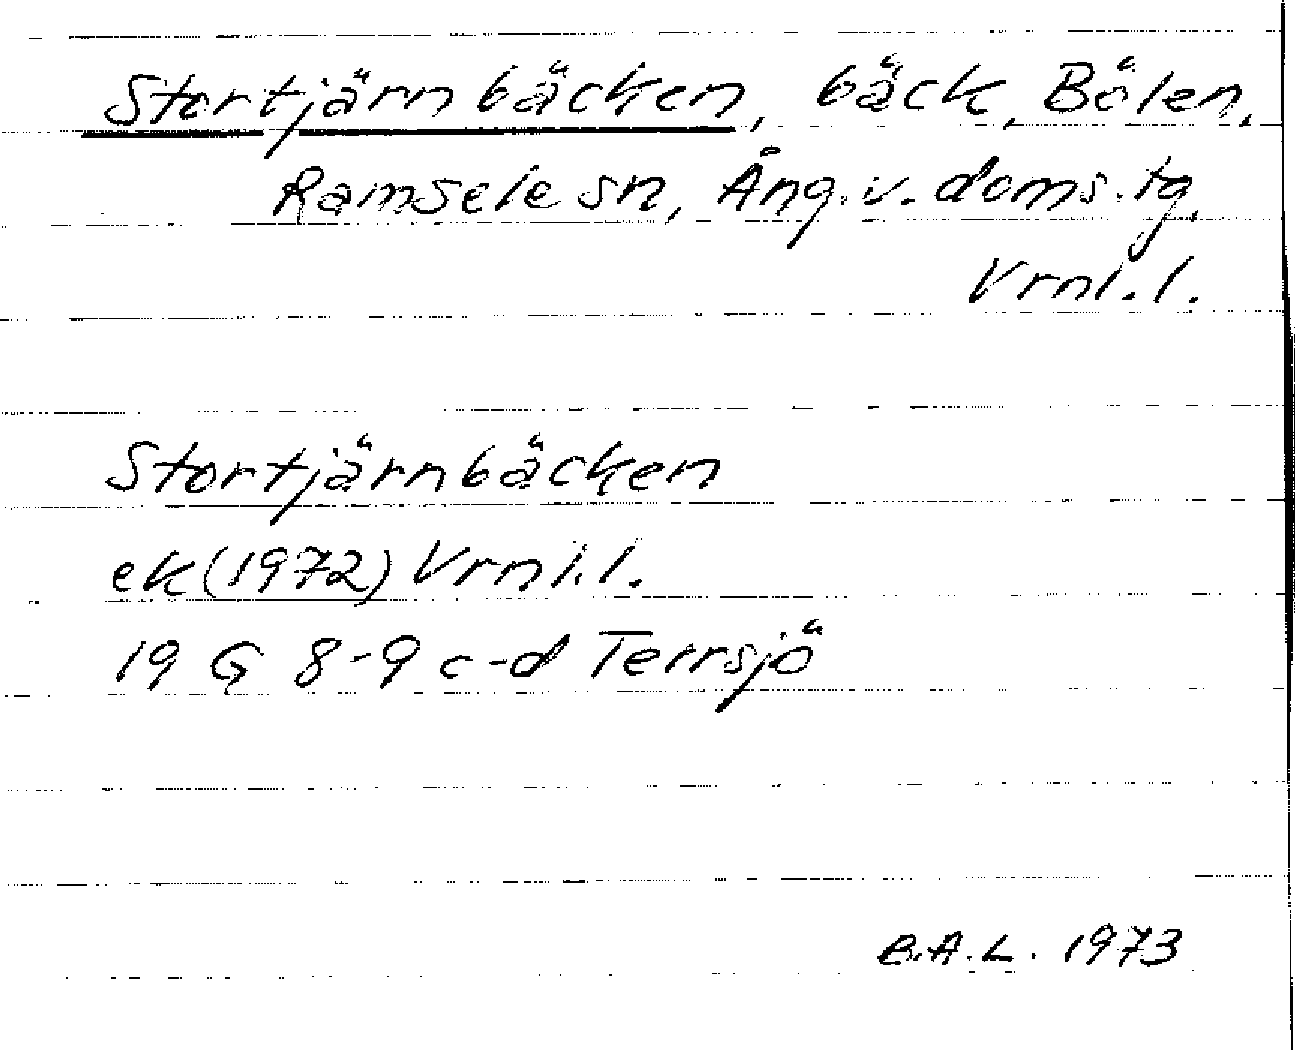 Stortjärnbäcken, bäck, Bölen,
Ramsele sn, Ång. v. doms. tg,
Vrnl. l.
Stortjärnbäcken
ek (1972) Vrnl. l.
19 G 8-9 c-d Terrsjö
B.A.L. 1973